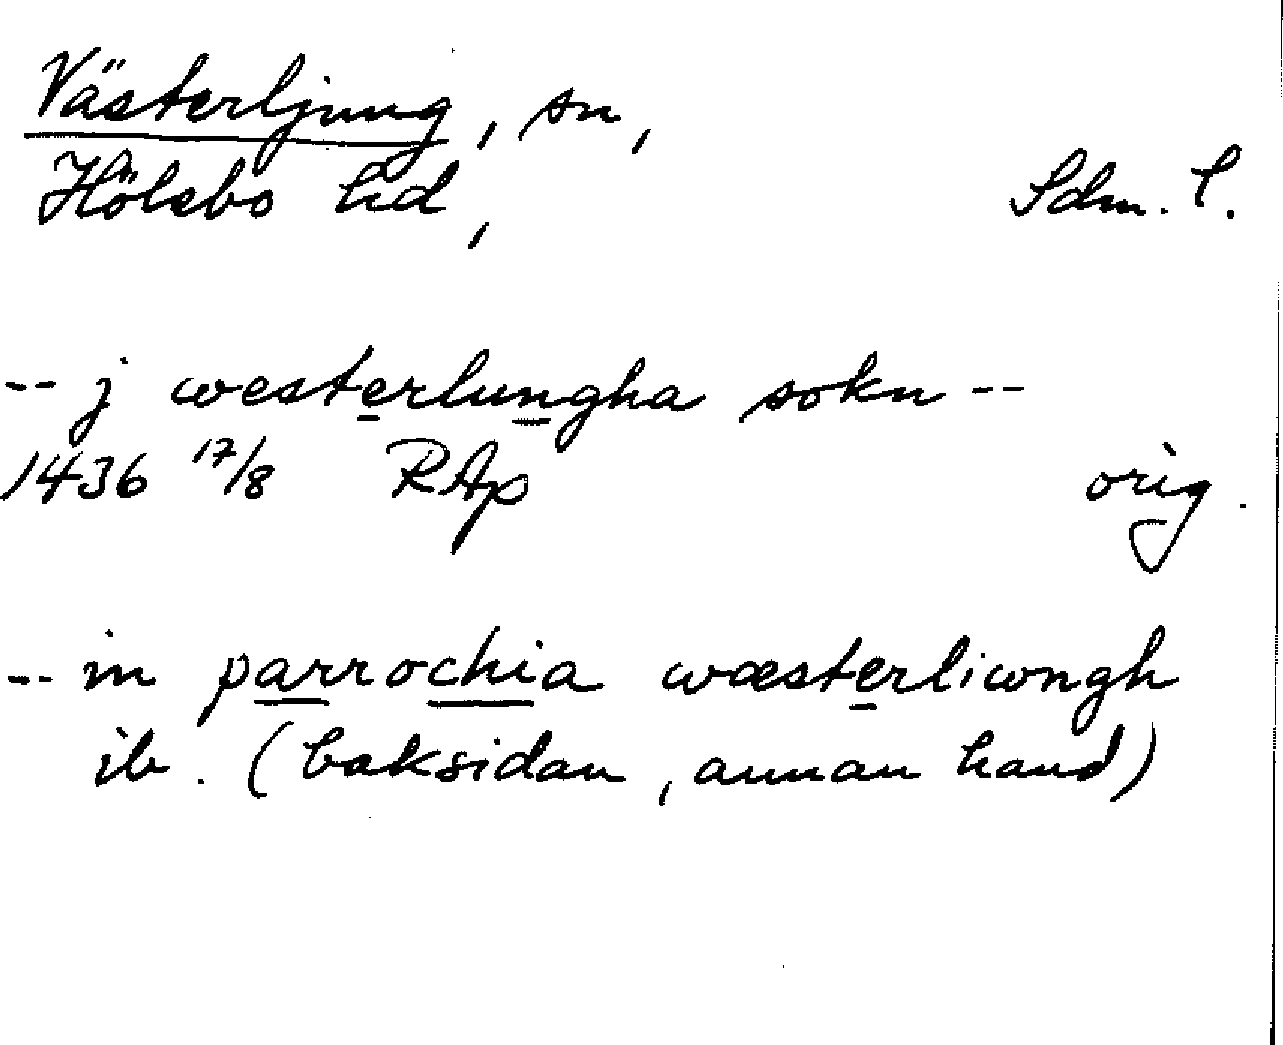 Västerljung, sn,
Hölebo hd, Sdm. l.
-- j westerlungha sokn --
1436 17/8 RAp orig.
-- in parrochia wæsterliwngh
ib. (baksidan, annan hand)